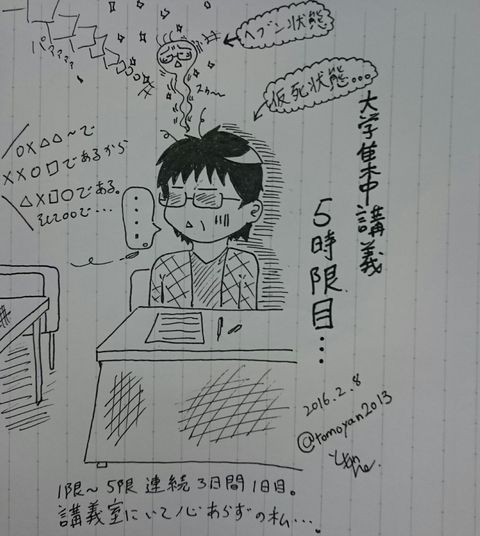 大学集中講義
5時限目…
ヘブン状態
仮死状態…
パァァァァ
スゥ〜
○×△△〜で
××○□であるから
△×□○である。
そして○○で…
…
2016.2.8
@tomoyan2013
1限〜5限 連続3日間1日目。
講義室にいて心あらずの私…。